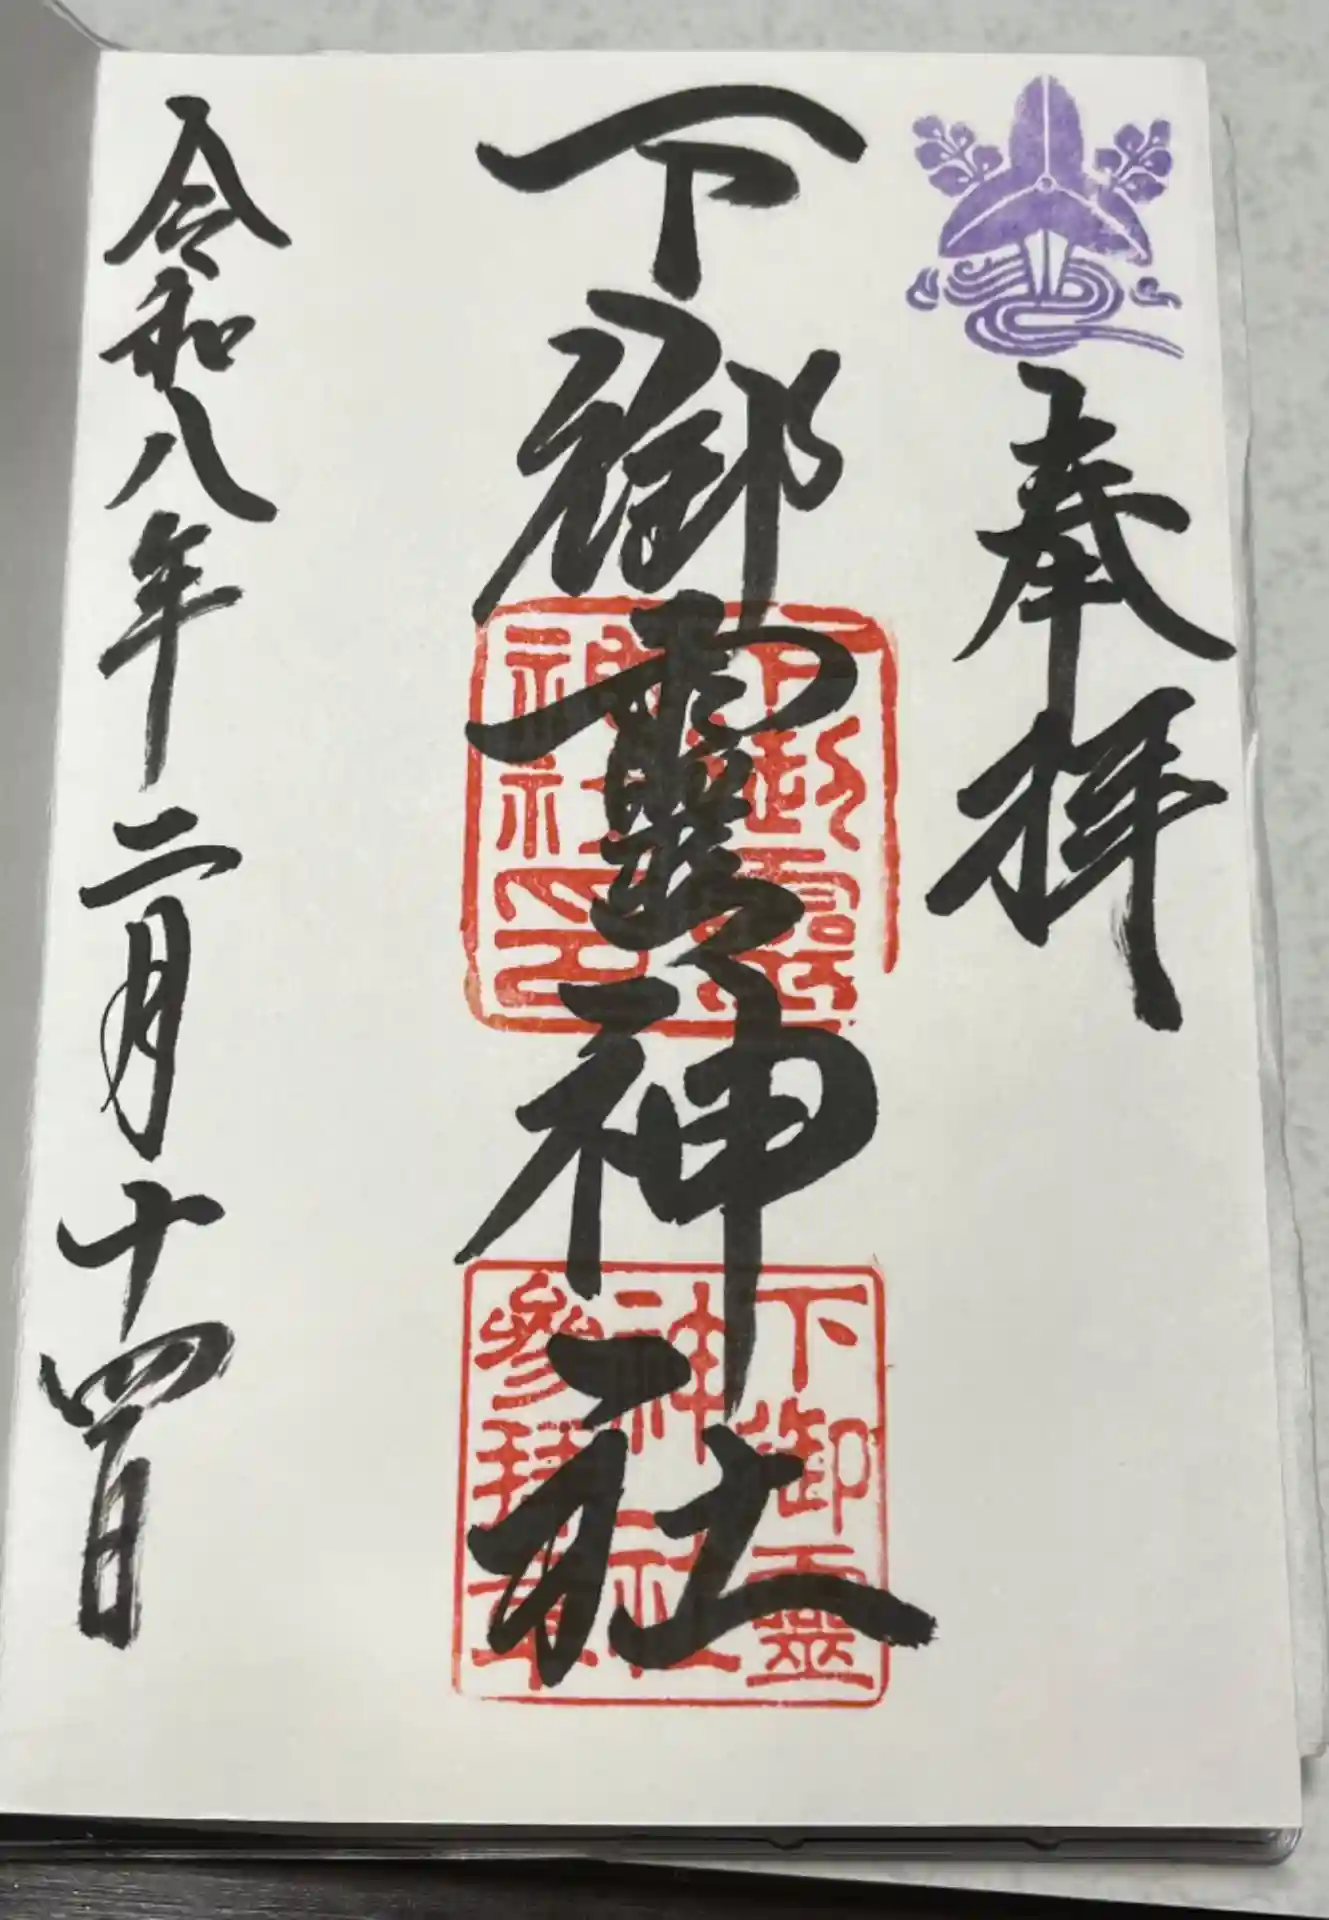 奉拝
下御霊神社
下御霊
神社印
下御霊
神社
参拝章
令和八年二月十四日